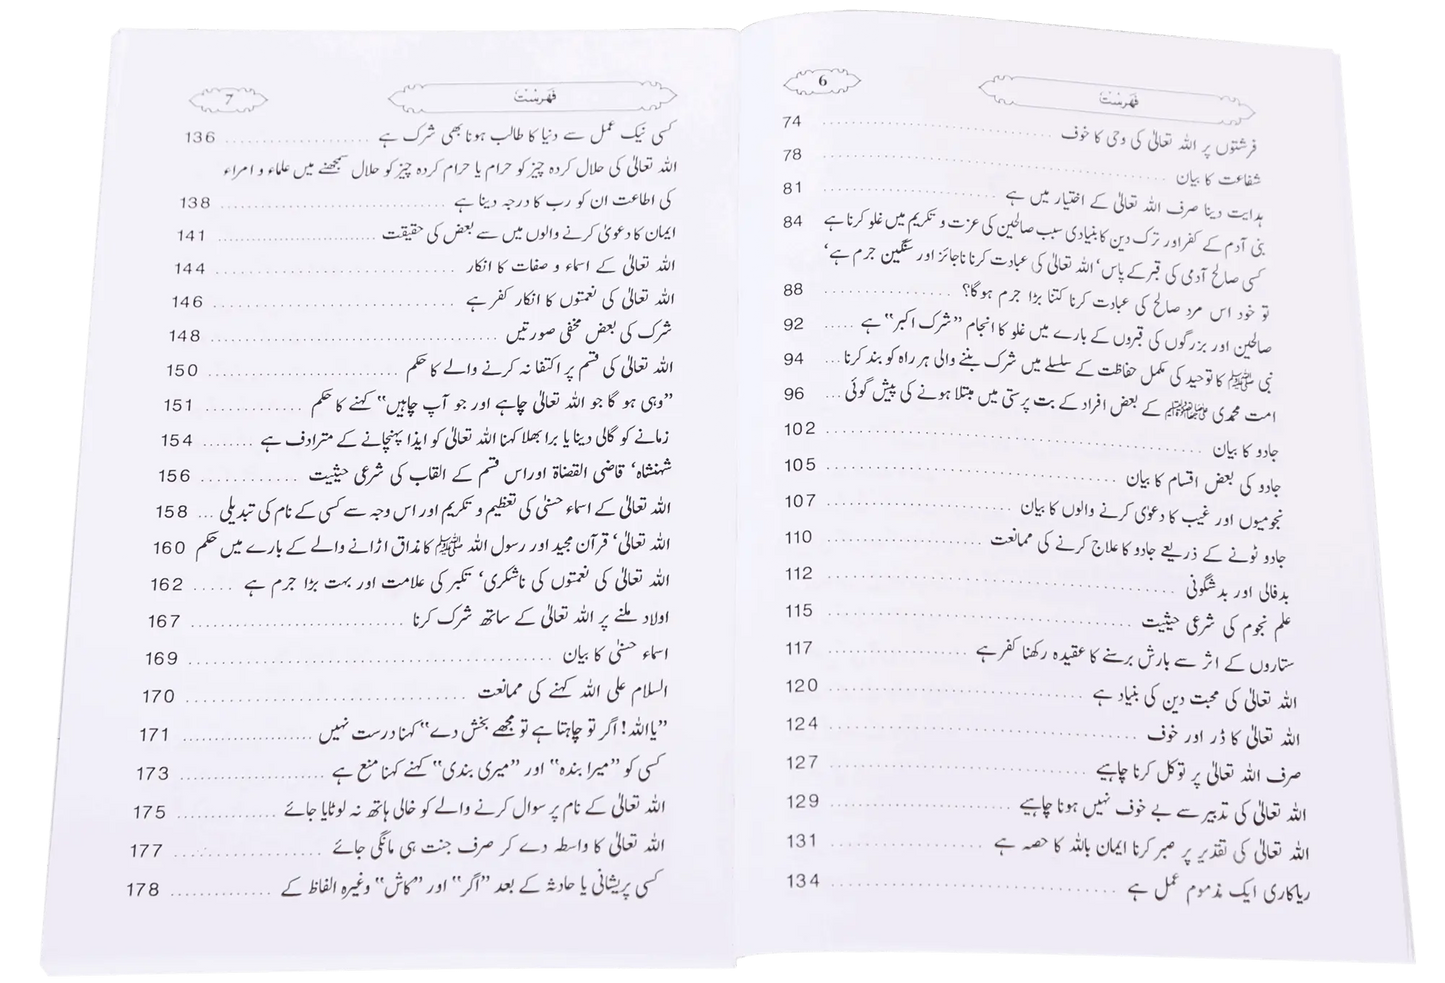 6
فہرست
فرشتوں پر اللہ تعالیٰ کی وحی کا خوف ..................... 74
شفاعت کا بیان ..................... 78
ہدایت دینا صرف اللہ تعالیٰ کے اختیار میں ہے ..................... 81
بنی آدم کے کفر اور ترک دین کا بنیادی سبب صالحین کی عزت و تکریم میں غلو کرنا ہے 84
کسی صالح آدمی کی قبر کے پاس، اللہ تعالیٰ کی عبادت کرنا ناجائز اور سنگین جرم ہے،
تو خود اس مرد صالح کی عبادت کرنا کتنا بڑا جرم ہوگا؟ ............... 88
صالحین اور بزرگوں کی قبروں کے بارے میں غلو کا انجام ”شرک اکبر“ ہے ..... 92
نبی ﷺ کا توحید کی مکمل حفاظت کے سلسلے میں شرک بننے والی ہر راہ کو بند کرنا ... 94
امت محمدی ﷺ کے بعض افراد کے بت پرستی میں مبتلا ہونے کی پیش گوئی ... 96
جادو کا بیان ..................... 102
جادو کی بعض اقسام کا بیان ..................... 105
نجومیوں اور غیب کا دعوٰی کرنے والوں کا بیان ..................... 107
جادو ٹونے کے ذریعے جادو کا علاج کرنے کی ممانعت ............... 110
بدفالی اور بدشگونی ..................... 112
علم نجوم کی شرعی حیثیت ..................... 115
ستاروں کے اثر سے بارش برسنے کا عقیدہ رکھنا کفر ہے ............... 117
اللہ تعالیٰ کی محبت دین کی بنیاد ہے ..................... 120
اللہ تعالیٰ کا ڈر اور خوف ..................... 124
صرف اللہ تعالیٰ پر توکل کرنا چاہیے ..................... 127
اللہ تعالیٰ کی تدبیر سے بے خوف نہیں ہونا چاہیے ..................... 129
اللہ تعالیٰ کی تقدیر پر صبر کرنا ایمان باللہ کا حصہ ہے ............... 131
ریاکاری ایک مذموم عمل ہے ..................... 134
7
فہرست
کسی نیک عمل سے دنیا کا طالب ہونا بھی شرک ہے ............... 136
اللہ تعالیٰ کی حلال کردہ چیز کو حرام یا حرام کردہ چیز کو حلال سمجھنے میں علماء و امراء
کی اطاعت ان کو رب کا درجہ دینا ہے ..................... 138
ایمان کا دعویٰ کرنے والوں میں سے بعض کی حقیقت ............... 141
اللہ تعالیٰ کے اسماء و صفات کا انکار ..................... 144
اللہ تعالیٰ کی نعمتوں کا انکار کفر ہے ..................... 146
شرک کی بعض مخفی صورتیں ..................... 148
اللہ تعالیٰ کی قسم پر اکتفا نہ کرنے والے کا حکم ............... 150
”وہی ہو گا جو اللہ تعالیٰ چاہے اور جو آپ چاہیں“ کہنے کا حکم ............ 151
زمانے کو گالی دینا یا برا بھلا کہنا اللہ تعالیٰ کو ایذا پہنچانے کے مترادف ہے ........ 154
شہنشاہ، قاضی القضاۃ اور اس قسم کے القاب کی شرعی حیثیت ............ 156
اللہ تعالیٰ کے اسماء حسنیٰ کی تعظیم و تکریم اور اس وجہ سے کسی کے نام کی تبدیلی ... 158
اللہ تعالیٰ، قرآن مجید اور رسول اللہ ﷺ کا مذاق اڑانے والے کے بارے میں حکم 160
اللہ تعالیٰ کی نعمتوں کی ناشکری، تکبر کی علامت اور بہت بڑا جرم ہے ..... 162
اولاد ملنے پر اللہ تعالیٰ کے ساتھ شرک کرنا ..................... 167
اسماء حسنیٰ کا بیان ..................... 169
السلام علی اللہ کہنے کی ممانعت ..................... 170
”یا اللہ! اگر تو چاہتا ہے تو مجھے بخش دے“ کہنا درست نہیں ............... 171
کسی کو ”میرا بندہ“ اور ”میری بندی“ کہنے کہنا منع ہے ............... 173
اللہ تعالیٰ کے نام پر سوال کرنے والے کو خالی ہاتھ نہ لوٹایا جائے ............ 175
اللہ تعالیٰ کا واسطہ دے کر صرف جنت ہی مانگی جائے ............... 177
کسی پریشانی یا حادثہ کے بعد ”اگر“ اور ”کاش“ وغیرہ الفاظ کے ............ 178